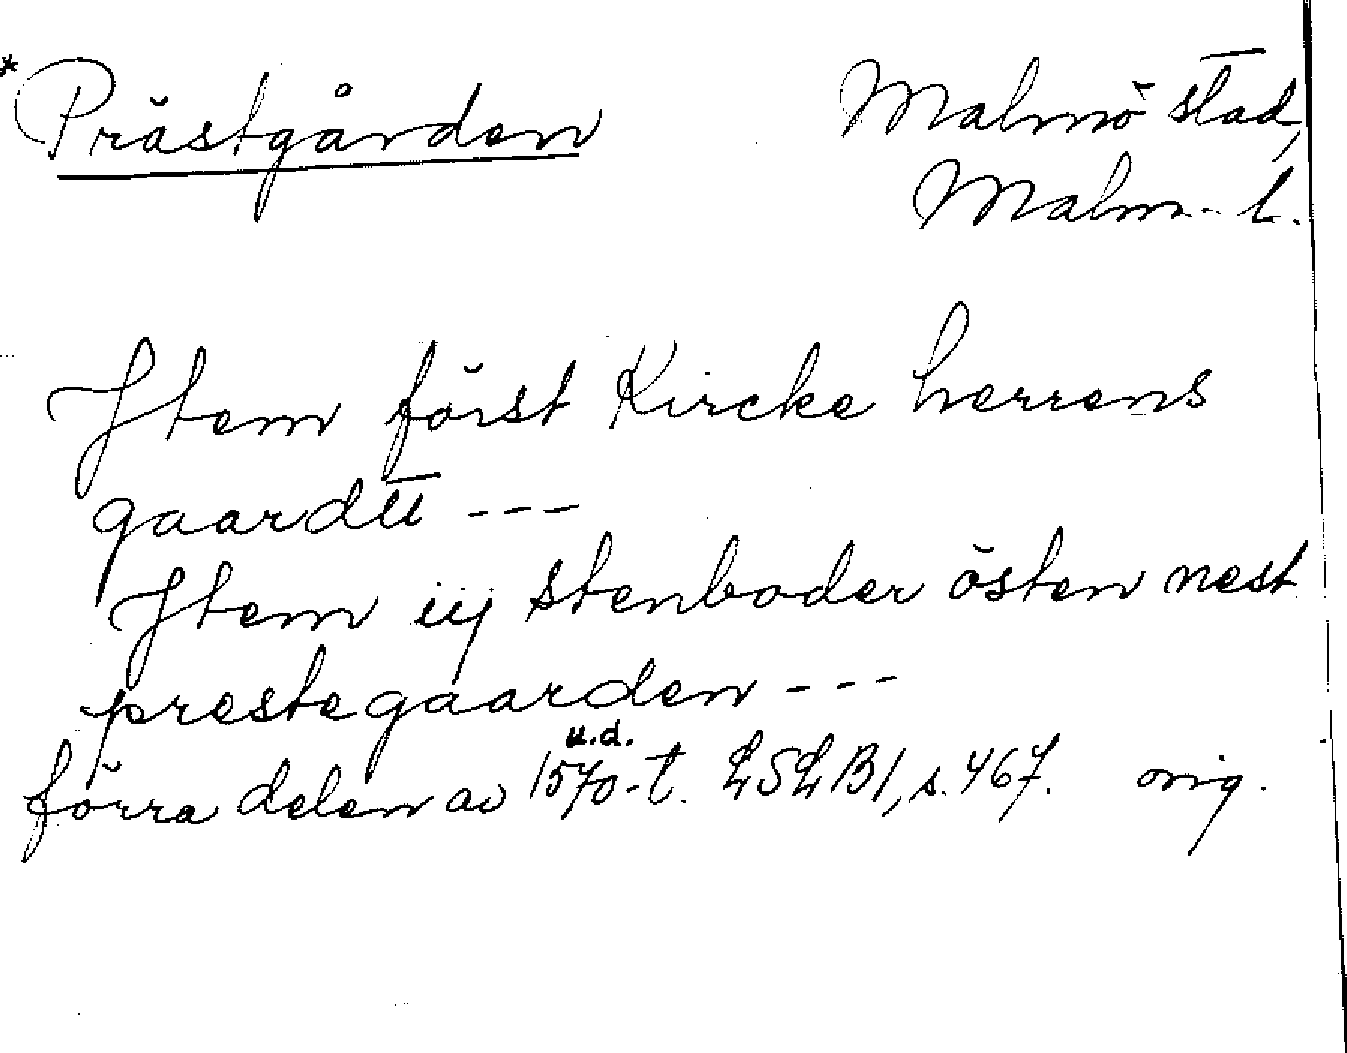 *Prästgården
Malmö stad,
Malm. l.
Item först Kircke herrens
gaardtt ---
Item iij stenboder östen nest
prestegaarden ---
u.d.
förra delen av 1570-t. LSLB1, s. 467. orig.